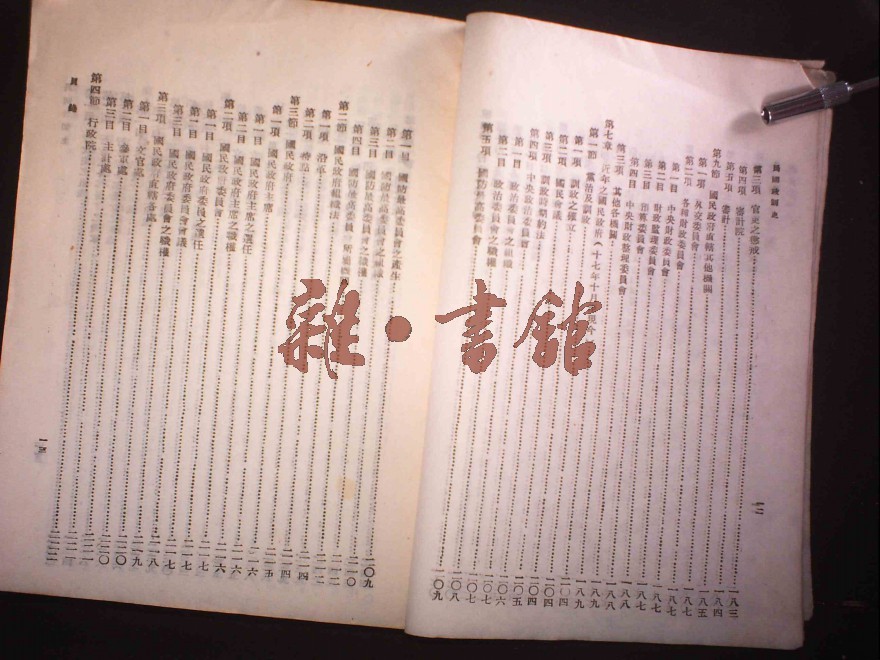 民國政制史
第三項 官吏之懲戒 一八三
第四項 審計院 一八四
第五項 審計 一八四
第九節 國民政府直轄其他機關 一八五
第一項 外交委員會 一八五
第二項 各種財政委員會 一八七
第一目 中央財政委員會 一八七
第二目 財政監理委員會 一八七
第三目 預算委員會 一八七
第四目 中央財政整理委員會 一八八
第三項 其他各機關 一八八
第七章 近年之國民政府(十七年十月
第一節 黨治及訓政 一八九
第一項 訓政之樹立 一八九
第二項 國民會議 二〇四
第三項 訓政時期約法 二〇四
第四項 中央政治委員會 二〇四
第一目 政治委員會之組織 二〇五
第二目 政治委員會之職權 二〇六
第五項 國防最高委員會 二〇七
一二
第一目 國防最高委員會之產生 二〇九
第二目 國防最高委員會之組織 二一〇
第三目 國防最高委員會之職權
第四目 國防最高委員會
第二節 國民政府組織法 二一二
第一項 沿革 二一二
第二項 特點 二一四
第三節 國民政府 二一四
第一項 國民政府主席 二一五
第一目 國民政府主席之選任 二一六
第二目 國民政府主席之職權 二一六
第二項 國民政府委員會 二一七
第一目 國民政府委員之選任 二一七
第二目 國民政府委員會會議 二一七
第三目 國民政府委員會之職權 二一八
第三項 國民政府直轄各處 二一九
第一目 文官處 二一九
第二目 參軍處 二二〇
第三目 主計處 二二〇
第四節 行政院
目錄
一三
雜·書館